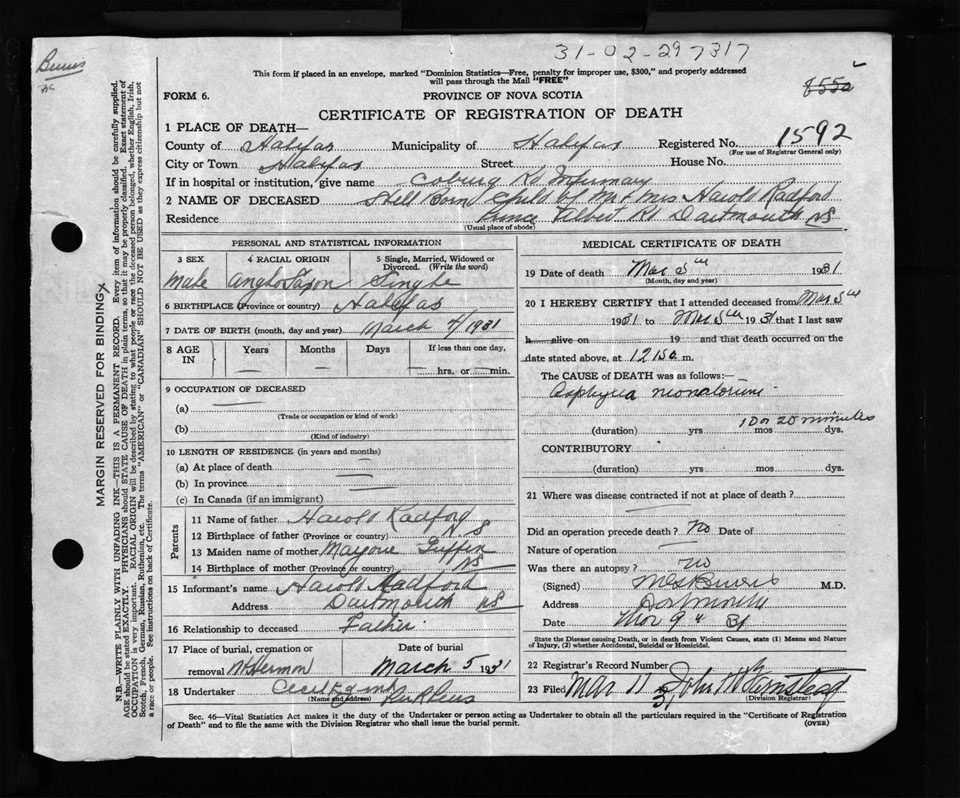 31-02-297317
Burns
8550
This form if placed in an envelope, marked "Dominion Statistics—Free, penalty for improper use, $300," and properly addressed
will pass through the Mail "FREE"
FORM 6.
PROVINCE OF NOVA SCOTIA
CERTIFICATE OF REGISTRATION OF DEATH
1 PLACE OF DEATH—
County of Halifax Municipality of Halifax Registered No. 1592
(For use of Registrar General only)
City or Town Halifax Street House No.
If in hospital or institution, give name Coburg Rd Infirmary
2 NAME OF DECEASED Still Born child of Mr & Mrs Harold Radford
Residence Prince Albert Rd Dartmouth NS
(Usual place of abode)
PERSONAL AND STATISTICAL INFORMATION
3 SEX 4 RACIAL ORIGIN 5 Single, Married, Widowed or
Divorced. (Write the word)
male Anglo Saxon Single
6 BIRTHPLACE (Province or country) Halifax
7 DATE OF BIRTH (month, day and year) March 4/1931
8 AGE
IN
Years Months Days If less than one day,
hrs. or min.
9 OCCUPATION OF DECEASED
(a)
(Trade or occupation or kind of work)
(b)
(Kind of industry)
10 LENGTH OF RESIDENCE (in years and months)
(a) At place of death
(b) In province
(c) In Canada (if an immigrant)
Parents
11 Name of father Harold Radford
12 Birthplace of father (Province or country) NS
13 Maiden name of mother Marjorie
14 Birthplace of mother (Province or country) NS
15 Informant's name Harold Radford
Address Dartmouth NS
16 Relationship to deceased Father
17 Place of burial, cremation or Date of burial
removal Mt Hermon March 5 1931
18 Undertaker Cecil E
(Name and address)
MEDICAL CERTIFICATE OF DEATH
19 Date of death Mar 5th 1931
(Month, day and year)
20 I HEREBY CERTIFY that I attended deceased from Mar 5th
1931 to Mar 5th 1931 that I last saw
h alive on 19 and that death occurred on the
date stated above, at 12 150 m.
The CAUSE of DEATH was as follows:—
Asphyxia neonatorum
10 or 20 minutes
(duration) yrs mos dys.
CONTRIBUTORY
(duration) yrs mos dys.
21 Where was disease contracted if not at place of death?
Did an operation precede death? No Date of
Nature of operation
Was there an autopsy? no
(Signed) Burns M.D.
Address Dartmouth
Date Mar 9th 31
State the Disease causing Death, or in death from Violent Causes, state (1) Means and Nature
of Injury, (2) whether Accidental, Suicidal or Homicidal.
22 Registrar's Record Number
23 Filed Mar 11 31 John
(Division Registrar)
Sec. 46—Vital Statistics Act makes it the duty of the Undertaker or person acting as Undertaker to obtain all the particulars required in the "Certificate of Registration
of Death" and to file the same with the Division Registrar who shall issue the burial permit. (OVER)
MARGIN RESERVED FOR BINDING
N.B.—WRITE PLAINLY WITH UNFADING INK—THIS IS A PERMANENT RECORD. Every item of information should be carefully supplied.
AGE should be stated EXACTLY. PHYSICIANS should STATE CAUSE OF DEATH in plain terms, so that it may be properly classified. Exact statement of
OCCUPATION is very important. RACIAL ORIGIN will be described by stating to what people or race the deceased person belonged, whether English, Irish,
Scotch, French, German, Russian, Ruthenian, etc. The terms "AMERICAN" or "CANADIAN" SHOULD NOT BE USED as they express citizenship but not
a race or people. See instructions on back of Certificate.